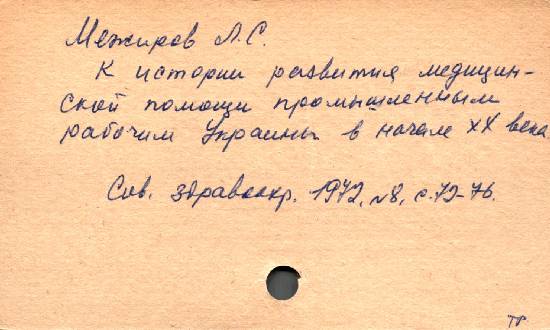 Межиров Л.С.
К истории развития медицин-
ской помощи промышленным
рабочим Украины в начале XX века.
Сов. здравоохр. 1972, №8, с.72-76.